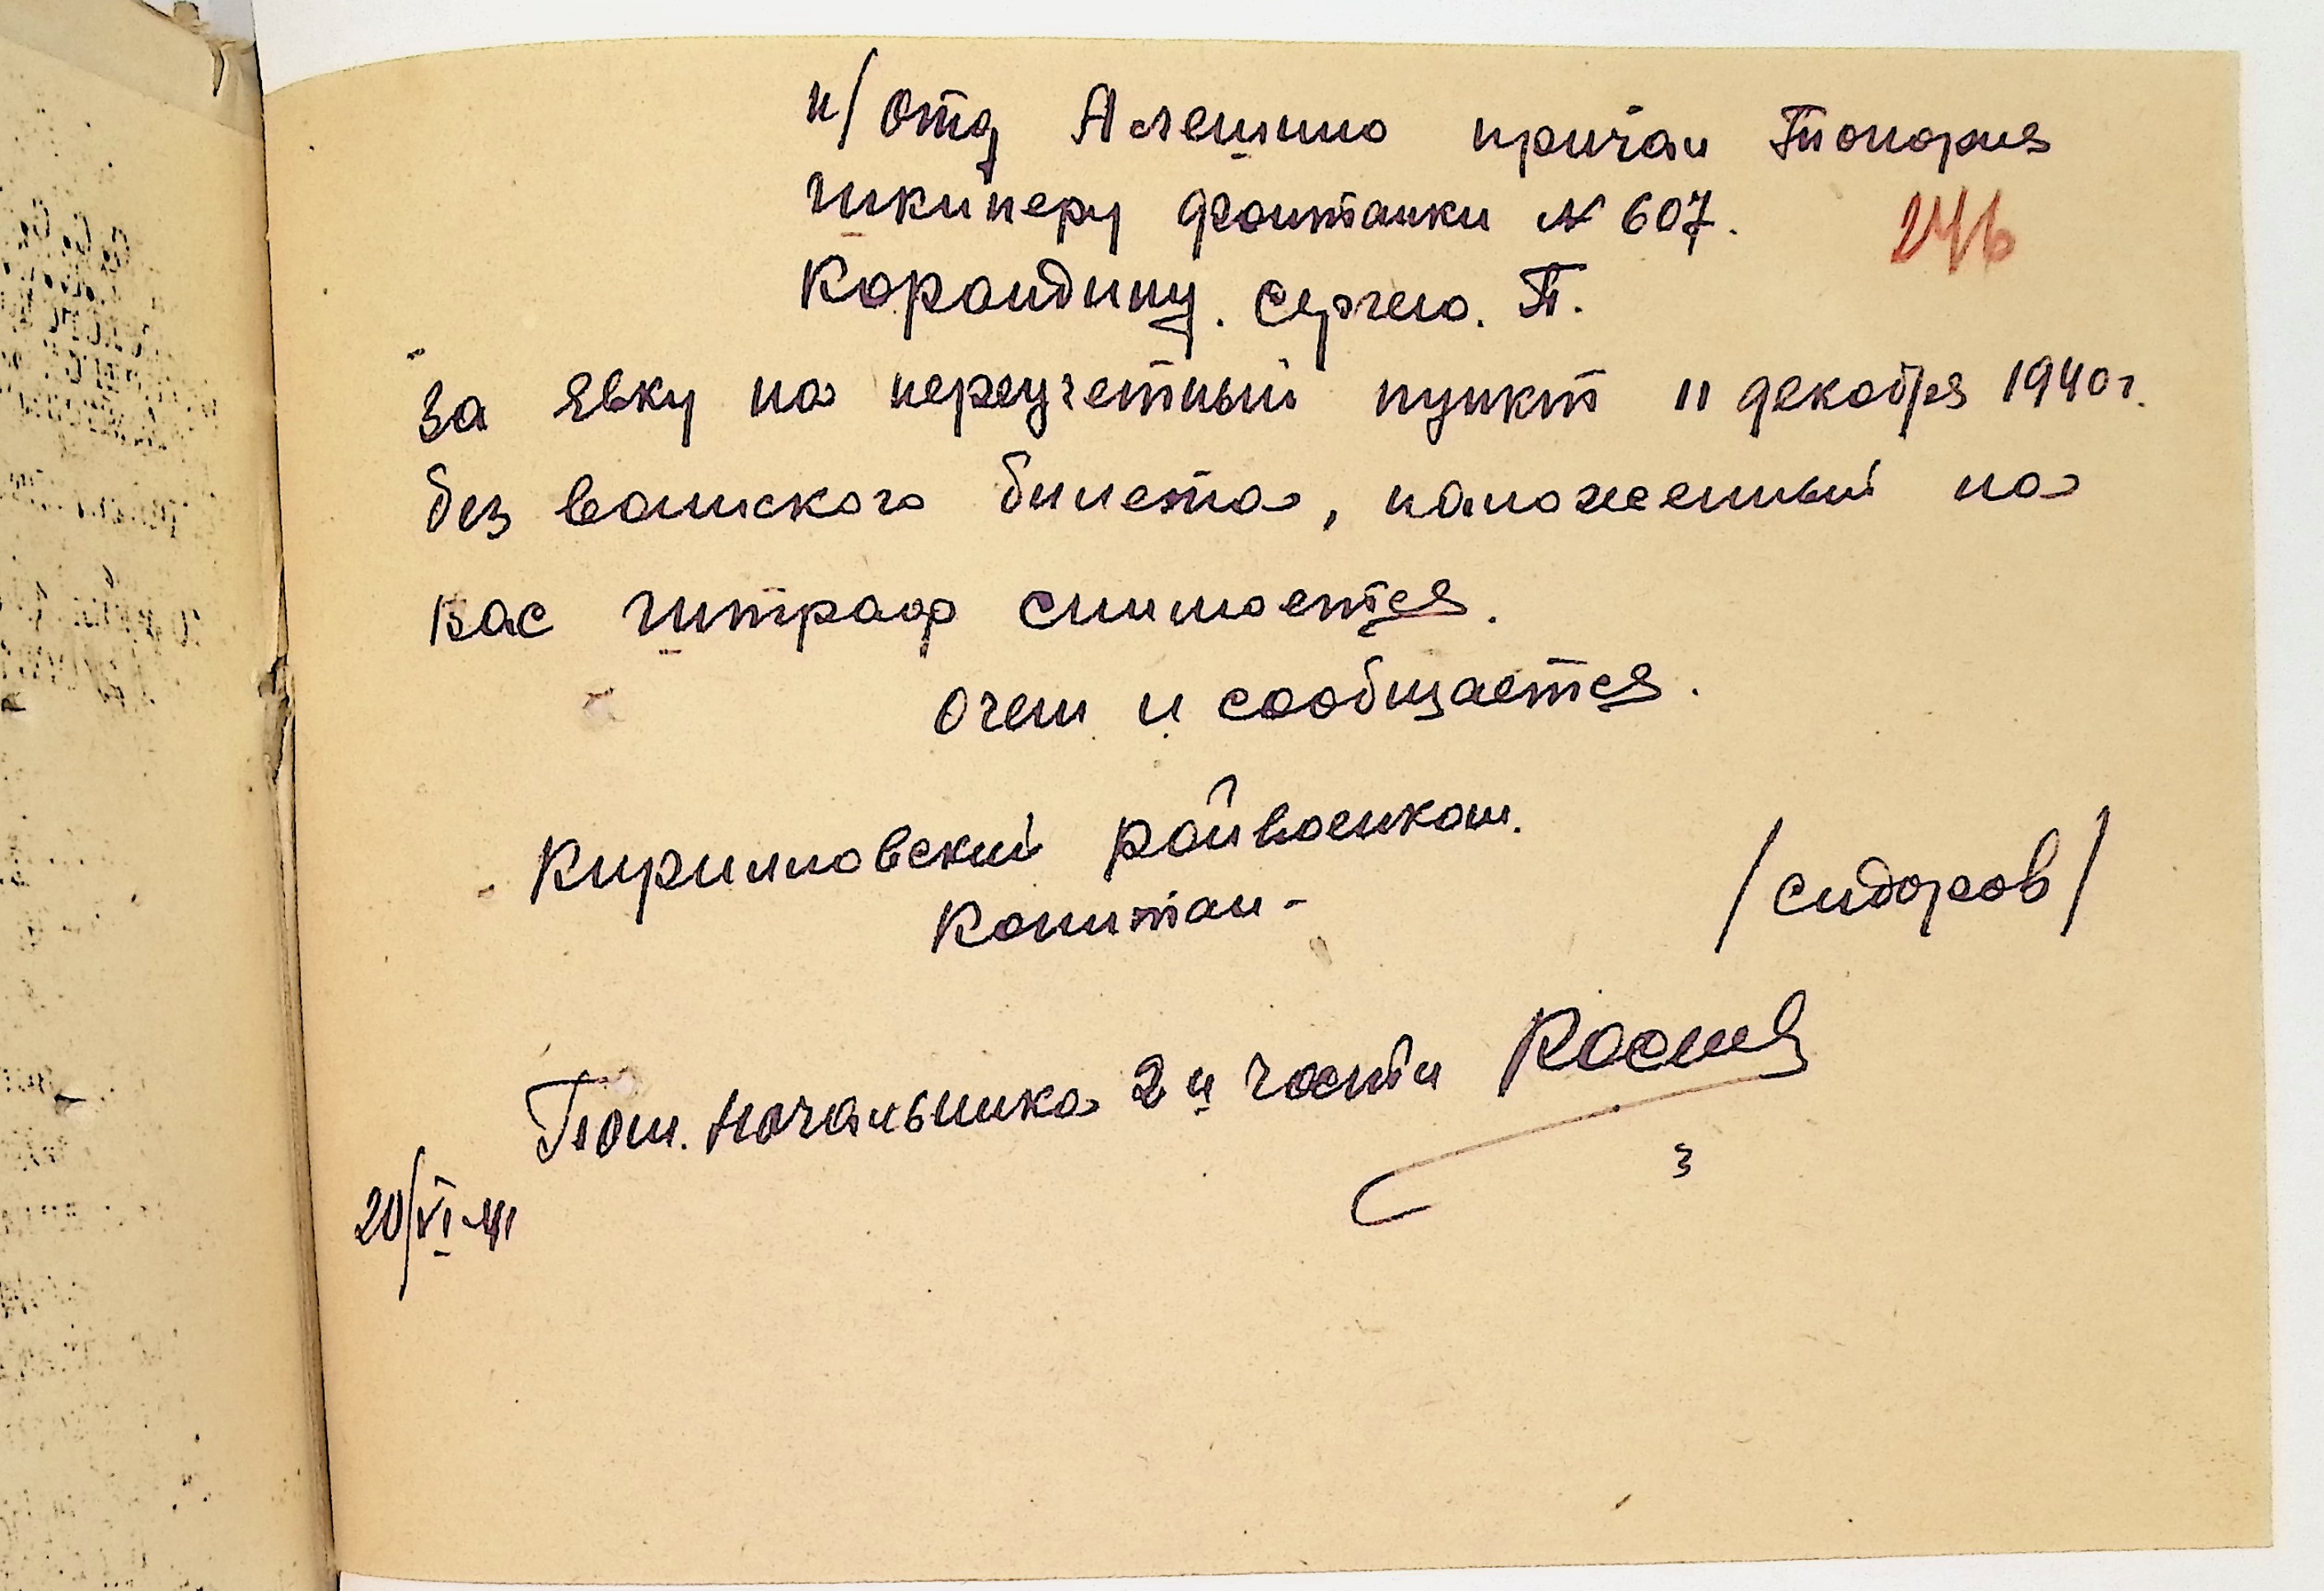 п/отд Алешино причал Топорня
Шкиперу фонтанки № 607.
246
Корандину. Сергею. П.
За явку на переучетный пункт 11 декабря 1940 г.
без воинского билета, наложенный на
вас штраф снимается.
О чем и сообщается.
Кирилловский райвоенком.
Капитан -
/Сидоров/
Пом. начальника 2 й части
3
20/VI-41